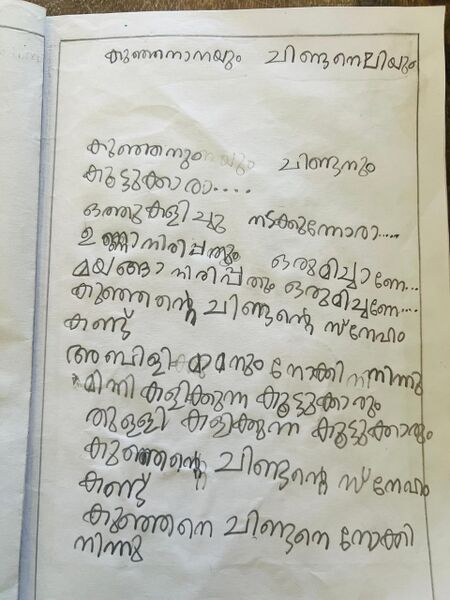 കുഞ്ഞനാനയും ചിണ്ടനെലിയും
കുഞ്ഞനും ചിണ്ടനും
കൂട്ടുക്കാരാ....
ഒത്തുകളിച്ചു നടക്കുന്നോരാ....
ഉണ്ണാനിരിപ്പതും ഒരുമിച്ചാണേ...
മയങ്ങാനിരിപ്പതും ഒരുമിച്ചണേ...
കുഞ്ഞൻ്റെ ചിണ്ടൻ്റെ സ്നേഹം
കണ്ട്
അമ്പിളി മാമനും നോക്കി നിന്നു
മിന്നി കളിക്കുന്ന കൂട്ടുക്കാരും
തുള്ളി കളിക്കുന്ന കൂട്ടുക്കാരും
കുഞ്ഞൻ്റെ ചിണ്ടൻ്റെ സ്നേഹം
കണ്ട്
കുഞ്ഞനെ ചിണ്ടനെ നോക്കി
നിന്നു